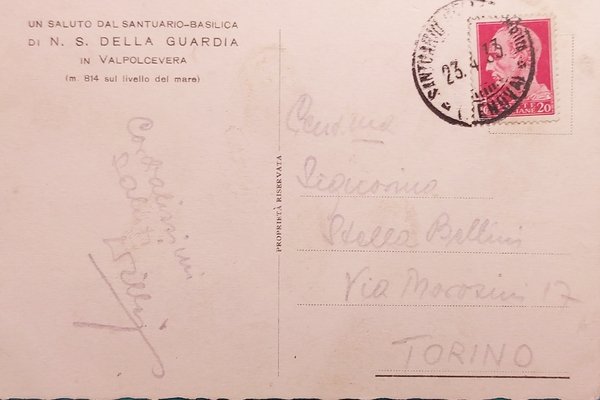 UN SALUTO DAL SANTUARIO-BASILICA
DI N. S. DELLA GUARDIA
IN VALPOLCEVERA
(m. 814 sul livello del mare)
Cordialissimi
saluti
PROPRIETÀ RISERVATA
SANTUARIO
23.4.33
20
Signorina
Stella Bellini
Via Morosini 17
TORINO